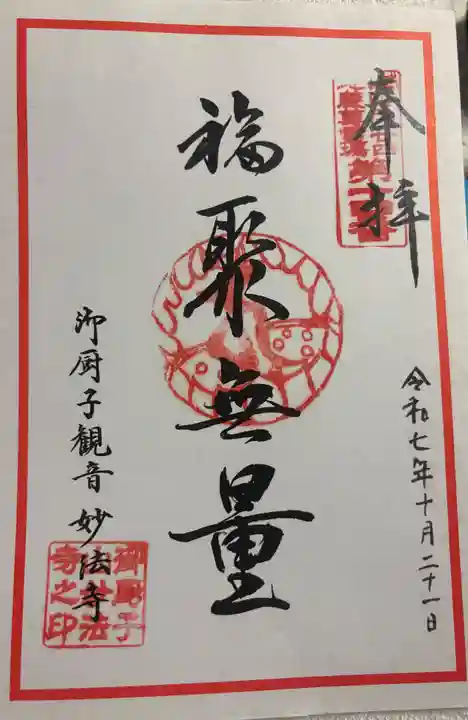 奉拝
令和七年十月二十一日
福聚無量
御厨子観音妙法寺
御厨子
妙法
寺之印